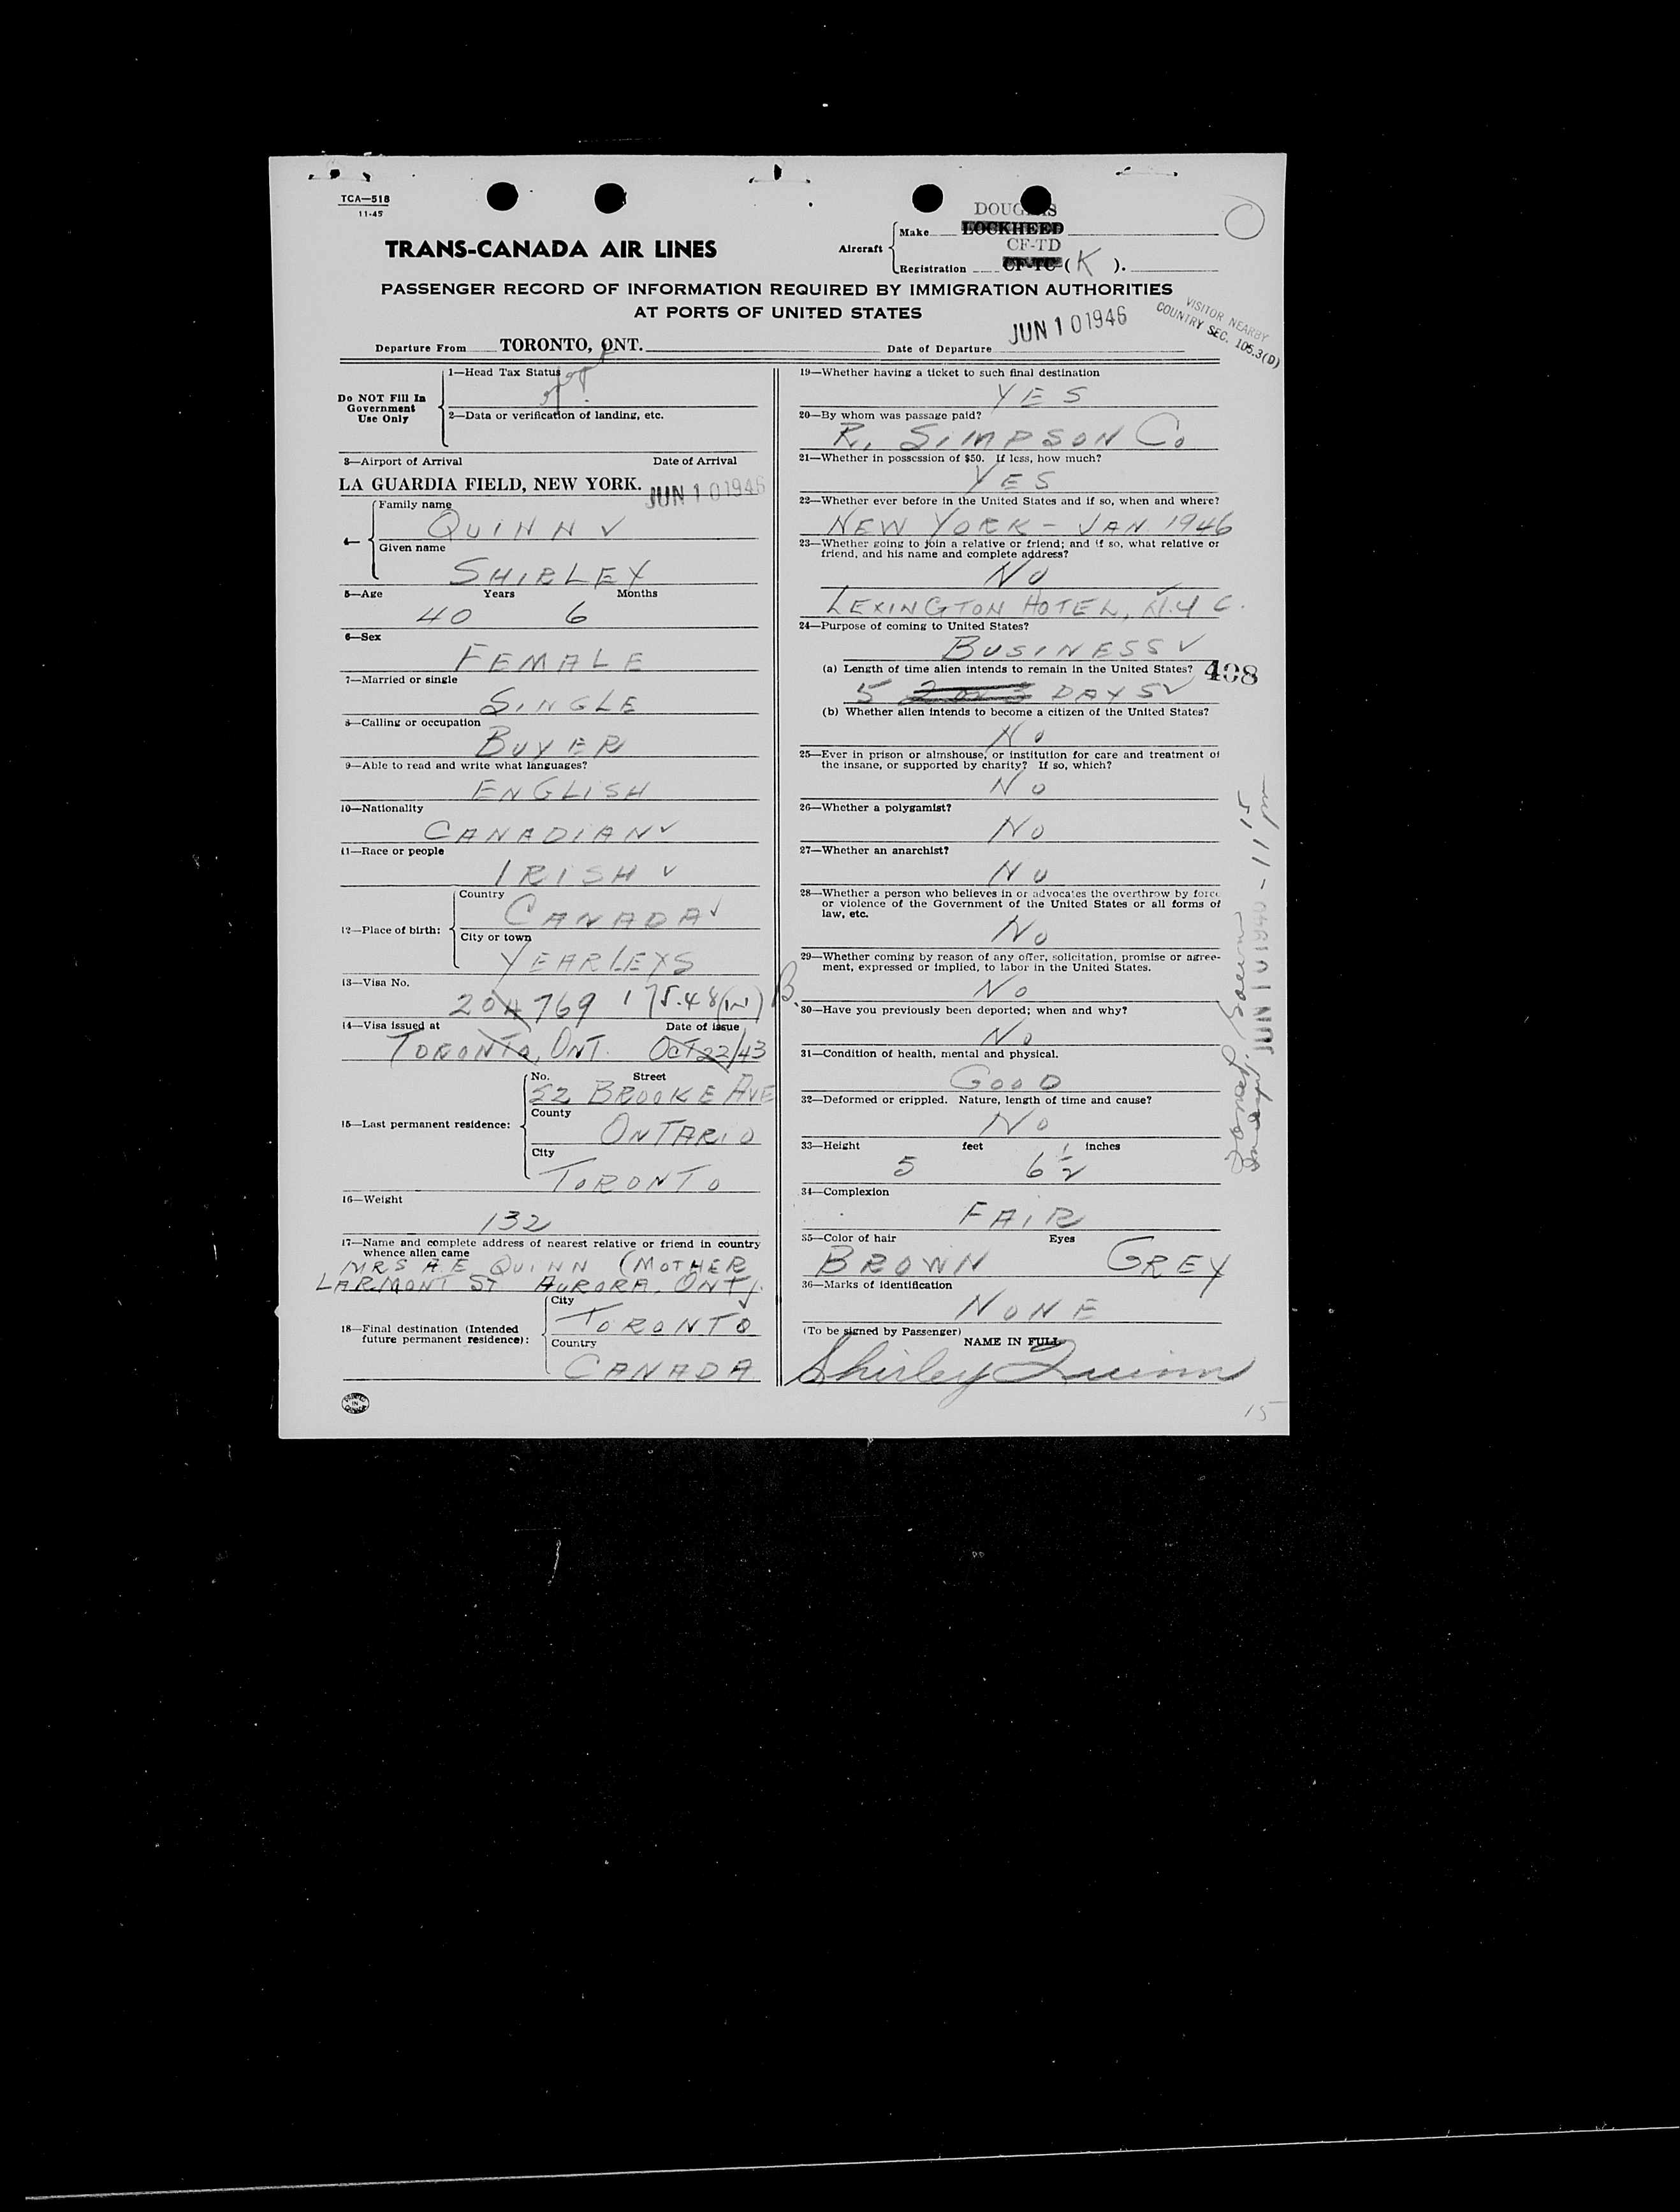 TCA—518
11-45
TRANS-CANADA AIR LINES
DOUGLAS
Aircraft
Make LOCKHEED
CF-TD
Registration CF-TC (K).
PASSENGER RECORD OF INFORMATION REQUIRED BY IMMIGRATION AUTHORITIES
AT PORTS OF UNITED STATES
VISITOR NEARBY
COUNTRY SEC. 105.3(D)
Departure From TORONTO, ONT.
Date of Departure JUN 10 1946
Do NOT Fill In
Government
Use Only
1—Head Tax Status
2—Data or verification of landing, etc.
3—Airport of Arrival Date of Arrival
LA GUARDIA FIELD, NEW YORK. JUN 10 1946
4—
Family name
QUINN ✓
Given name
SHIRLEY
5—Age Years Months
40 6
6—Sex
FEMALE
7—Married or single
SINGLE
8—Calling or occupation
BUYER
9—Able to read and write what languages?
ENGLISH
10—Nationality
CANADIAN ✓
11—Race or people
IRISH ✓
12—Place of birth:
Country
CANADA ✓
City or town
YEARLEYS
13—Visa No.
204769 175.48(IN) B.
14—Visa issued at Date of issue
TORONTO, ONT. OCT 22/43
15—Last permanent residence:
No. Street
52 BROOKE AVE
County
ONTARIO
City
TORONTO
16—Weight
132
17—Name and complete address of nearest relative or friend in country
whence alien came
MRS A.E. QUINN (MOTHER
LARMONT ST AURORA, ONT).
18—Final destination (Intended
future permanent residence):
City
TORONTO
Country
CANADA
PRINTED
IN
CANADA
19—Whether having a ticket to such final destination
YES
20—By whom was passage paid?
R. SIMPSON Co
21—Whether in possession of $50. If less, how much?
YES
22—Whether ever before in the United States and if so, when and where?
NEW YORK - JAN. 1946
23—Whether going to join a relative or friend; and if so, what relative or
friend, and his name and complete address?
NO
LEXINGTON HOTEL, N.Y C.
24—Purpose of coming to United States?
BUSINESS ✓
(a) Length of time alien intends to remain in the United States? 408
5 2 OR 3 DAYS ✓
(b) Whether alien intends to become a citizen of the United States?
NO
25—Ever in prison or almshouse, or institution for care and treatment of
the insane, or supported by charity? If so, which?
NO
26—Whether a polygamist?
NO
27—Whether an anarchist?
NO
28—Whether a person who believes in or advocates the overthrow by force
or violence of the Government of the United States or all forms of
law, etc.
NO
29—Whether coming by reason of any offer, solicitation, promise or agree-
ment, expressed or implied, to labor in the United States.
NO
30—Have you previously been deported; when and why?
NO
31—Condition of health, mental and physical.
GOOD
32—Deformed or crippled. Nature, length of time and cause?
NO
33—Height feet inches
5 6 ½
34—Complexion
FAIR
35—Color of hair Eyes
BROWN GREY
36—Marks of identification
NONE
(To be signed by Passenger)
NAME IN FULL
Shirley Quinn
JUN 10 1946 - 11 15 pm
15